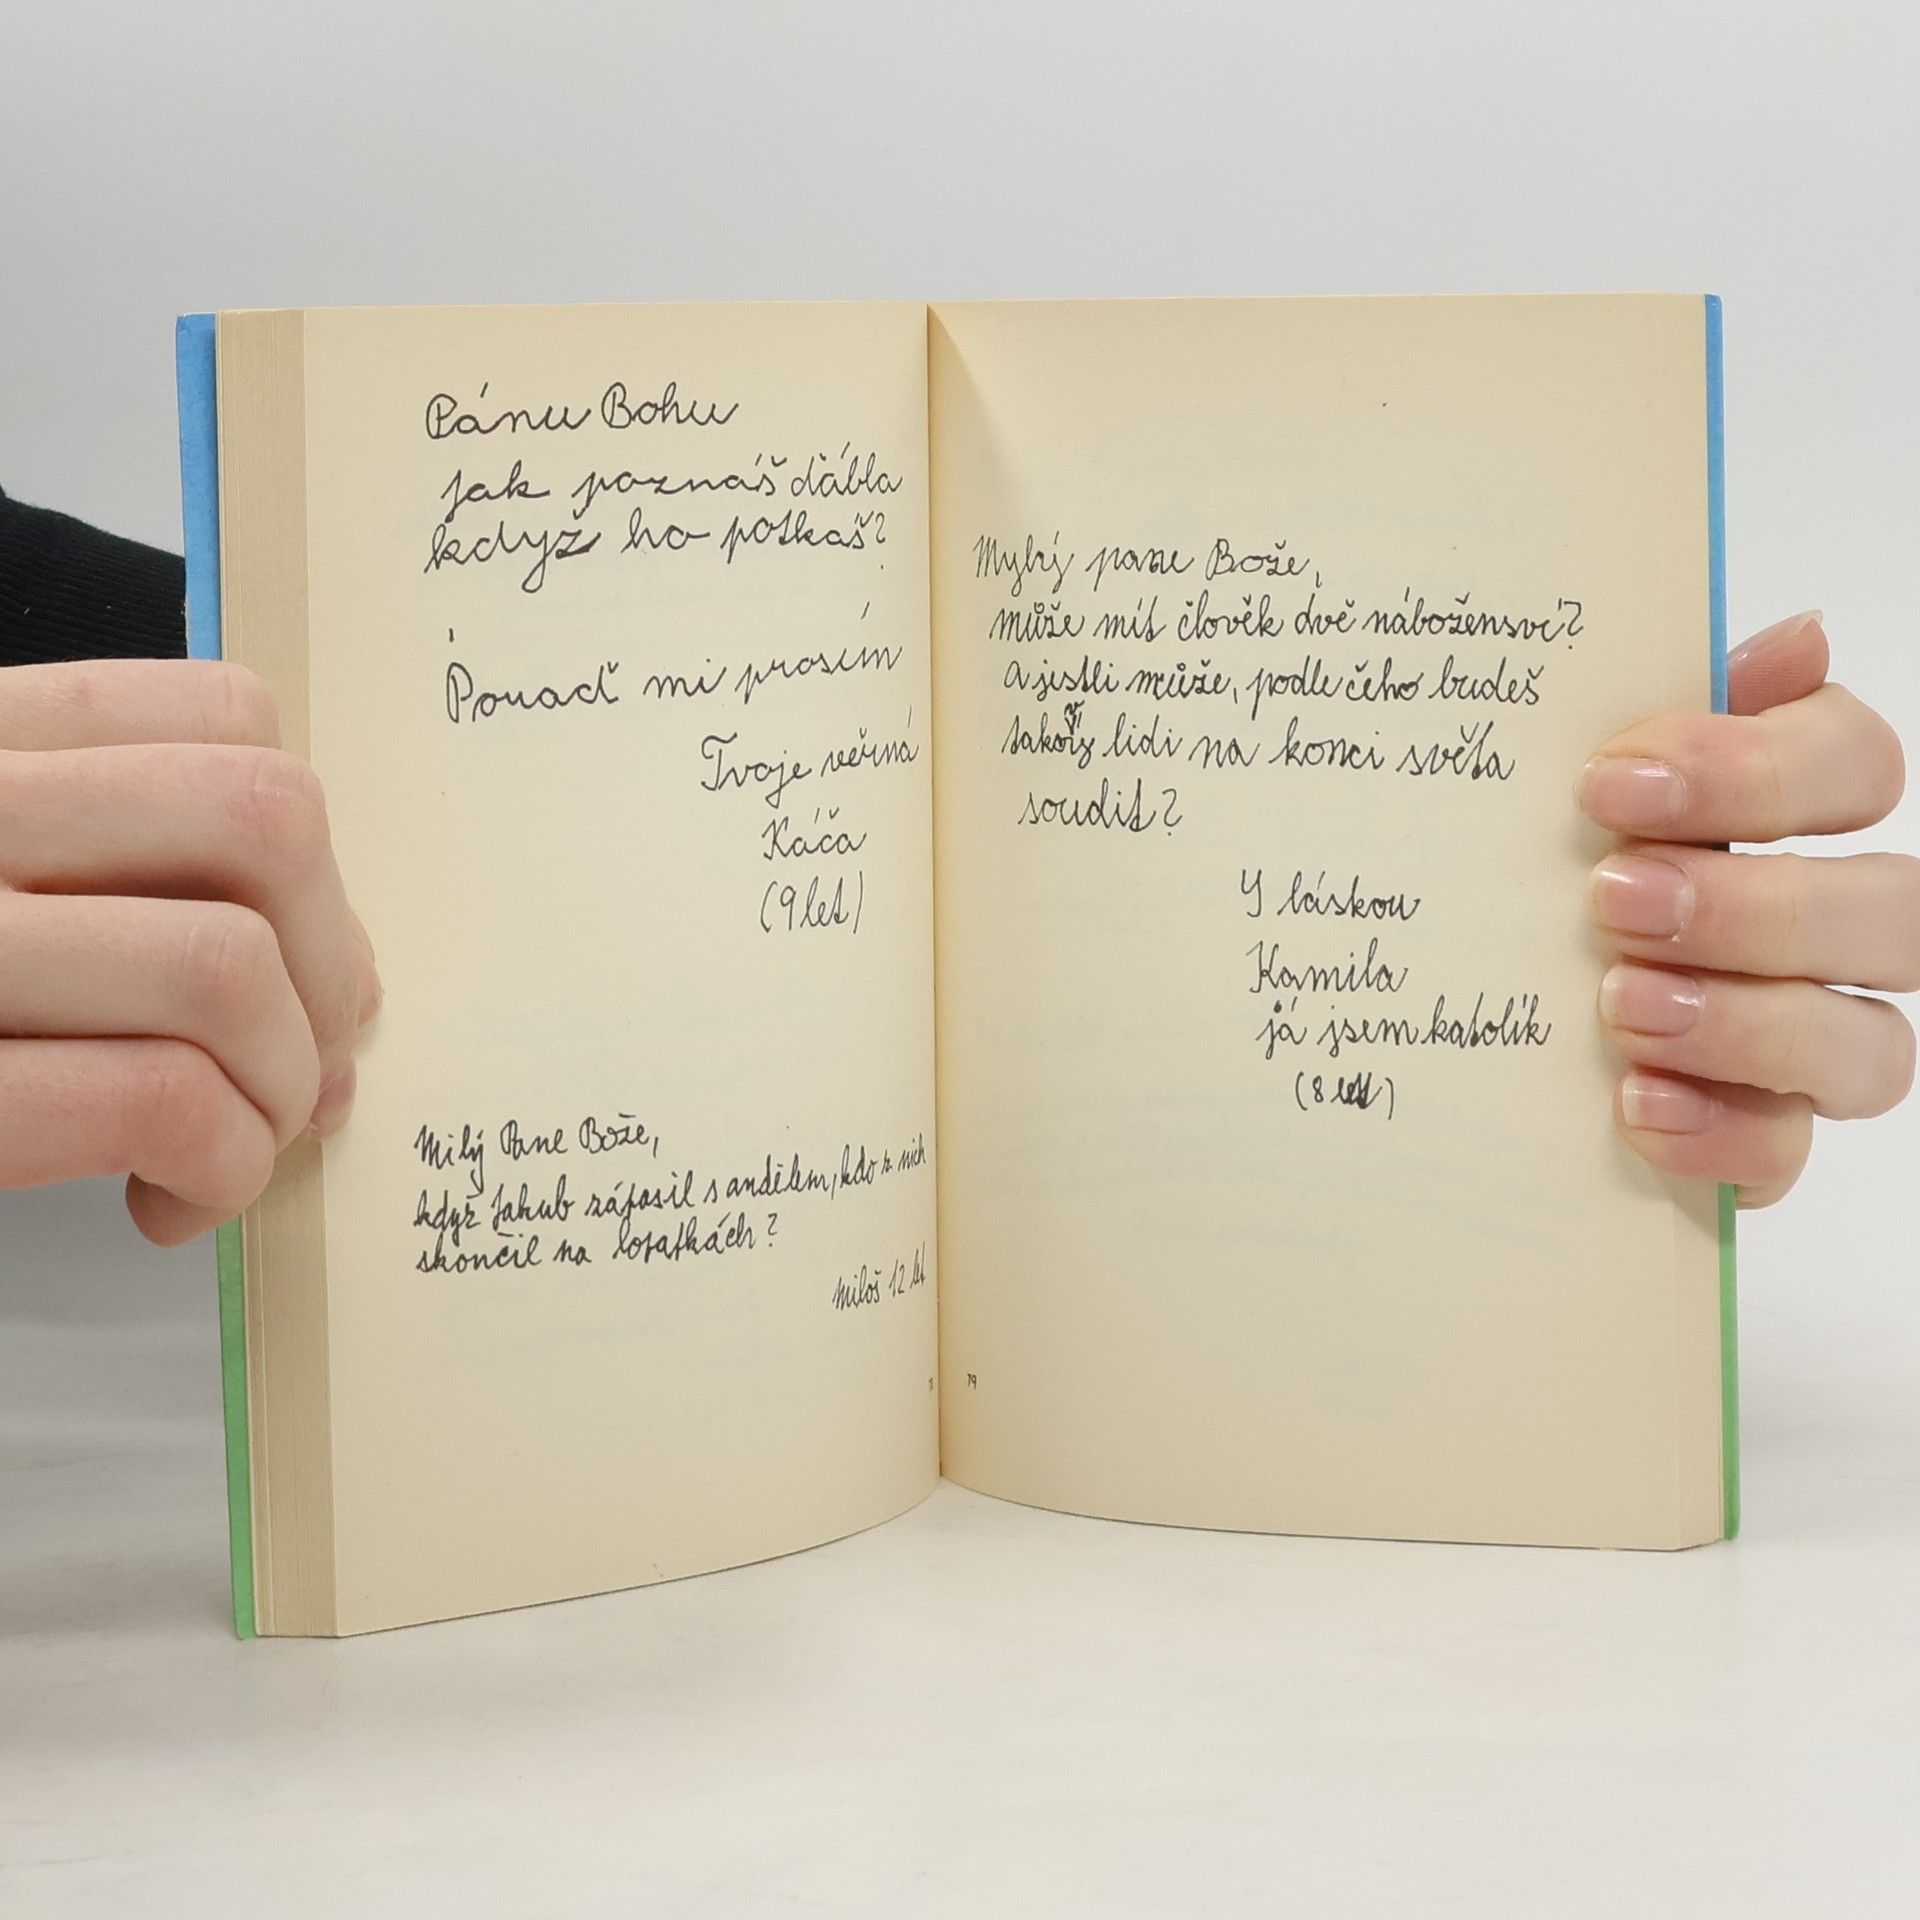 Pánu Bohu
jak poznáš ďábla
když ho potkáš?
Pouač mi prosím
Tvoje věrná
Káča
(9 let)
Milý Pane Bože,
když Jakub zápasil s andělem, kdo z nich
skončil na lopatkách?
Miloš 12 let
Mylý pane Bože,
může mít člověk dvě nábožensví?
A jestli může, podle čeho budeš
lidi na konci světa
soudit?
S láskou
Kamila
já jsem katolík
(8 let)
79